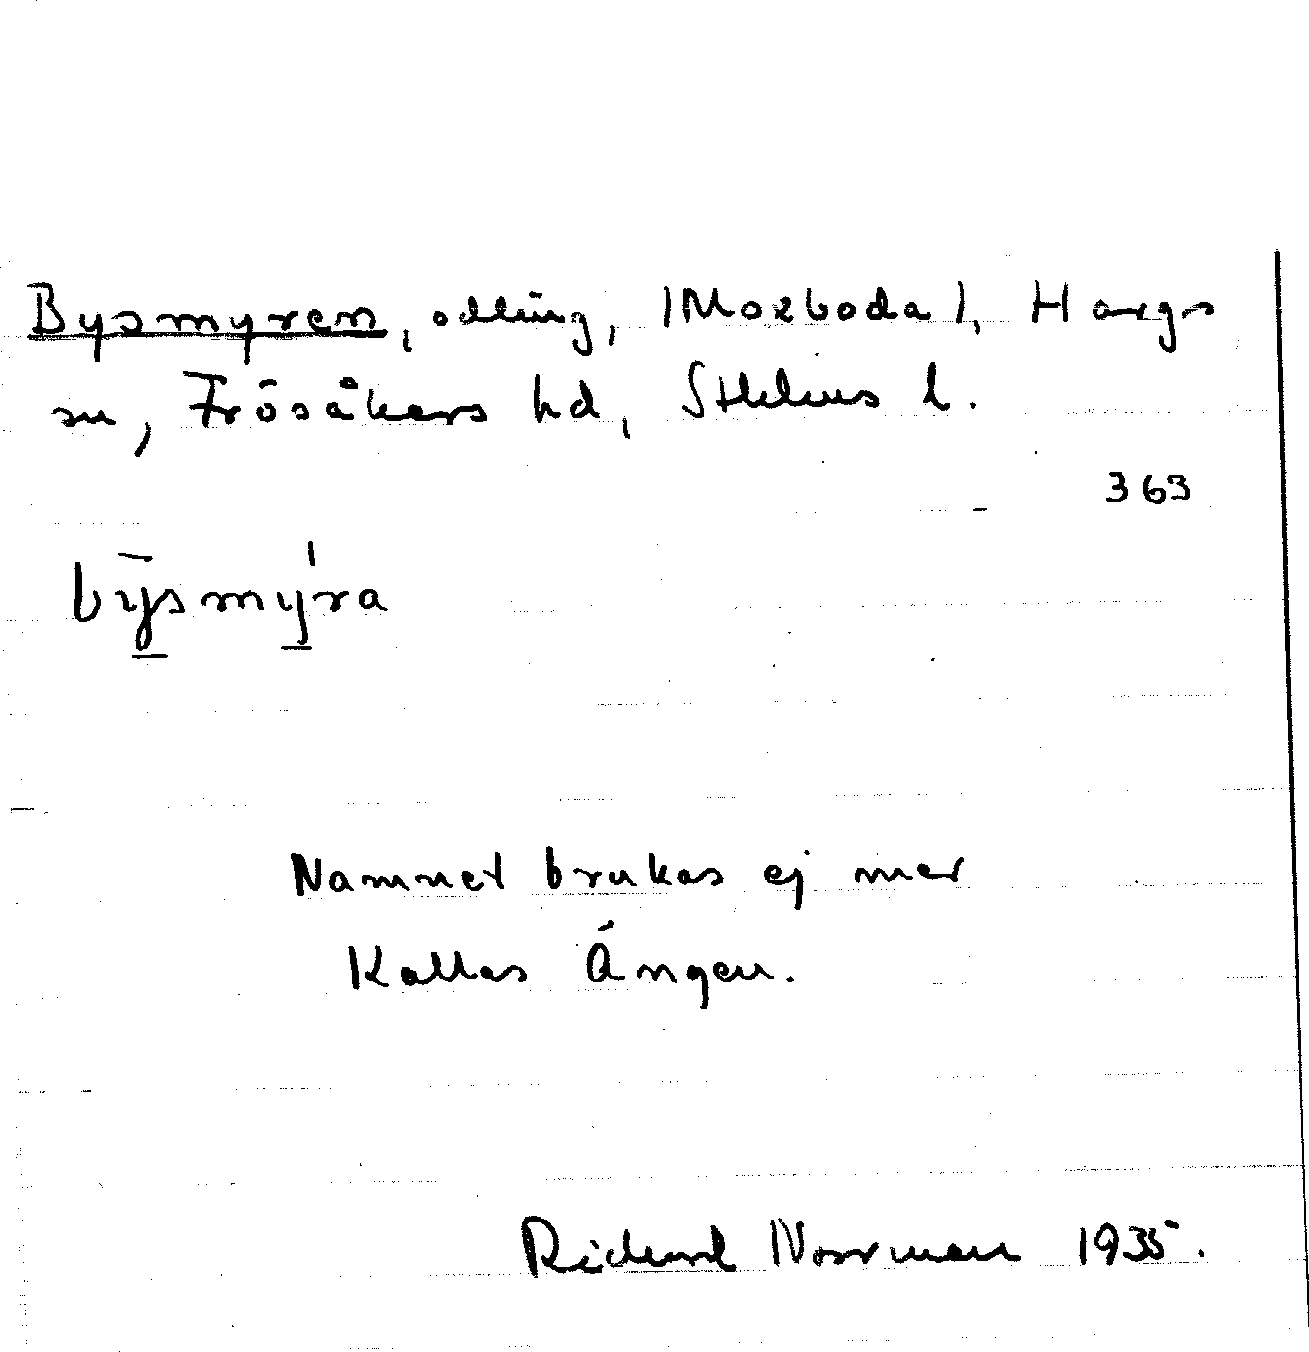 Bysmyren, odling, (Morboda), Hargs
sn, Frösåkers hd, Sthlms l.
363
bȳsmýra
Namnet brukas ej mer
Kallas Ängen.
Richard Norrman 1935.